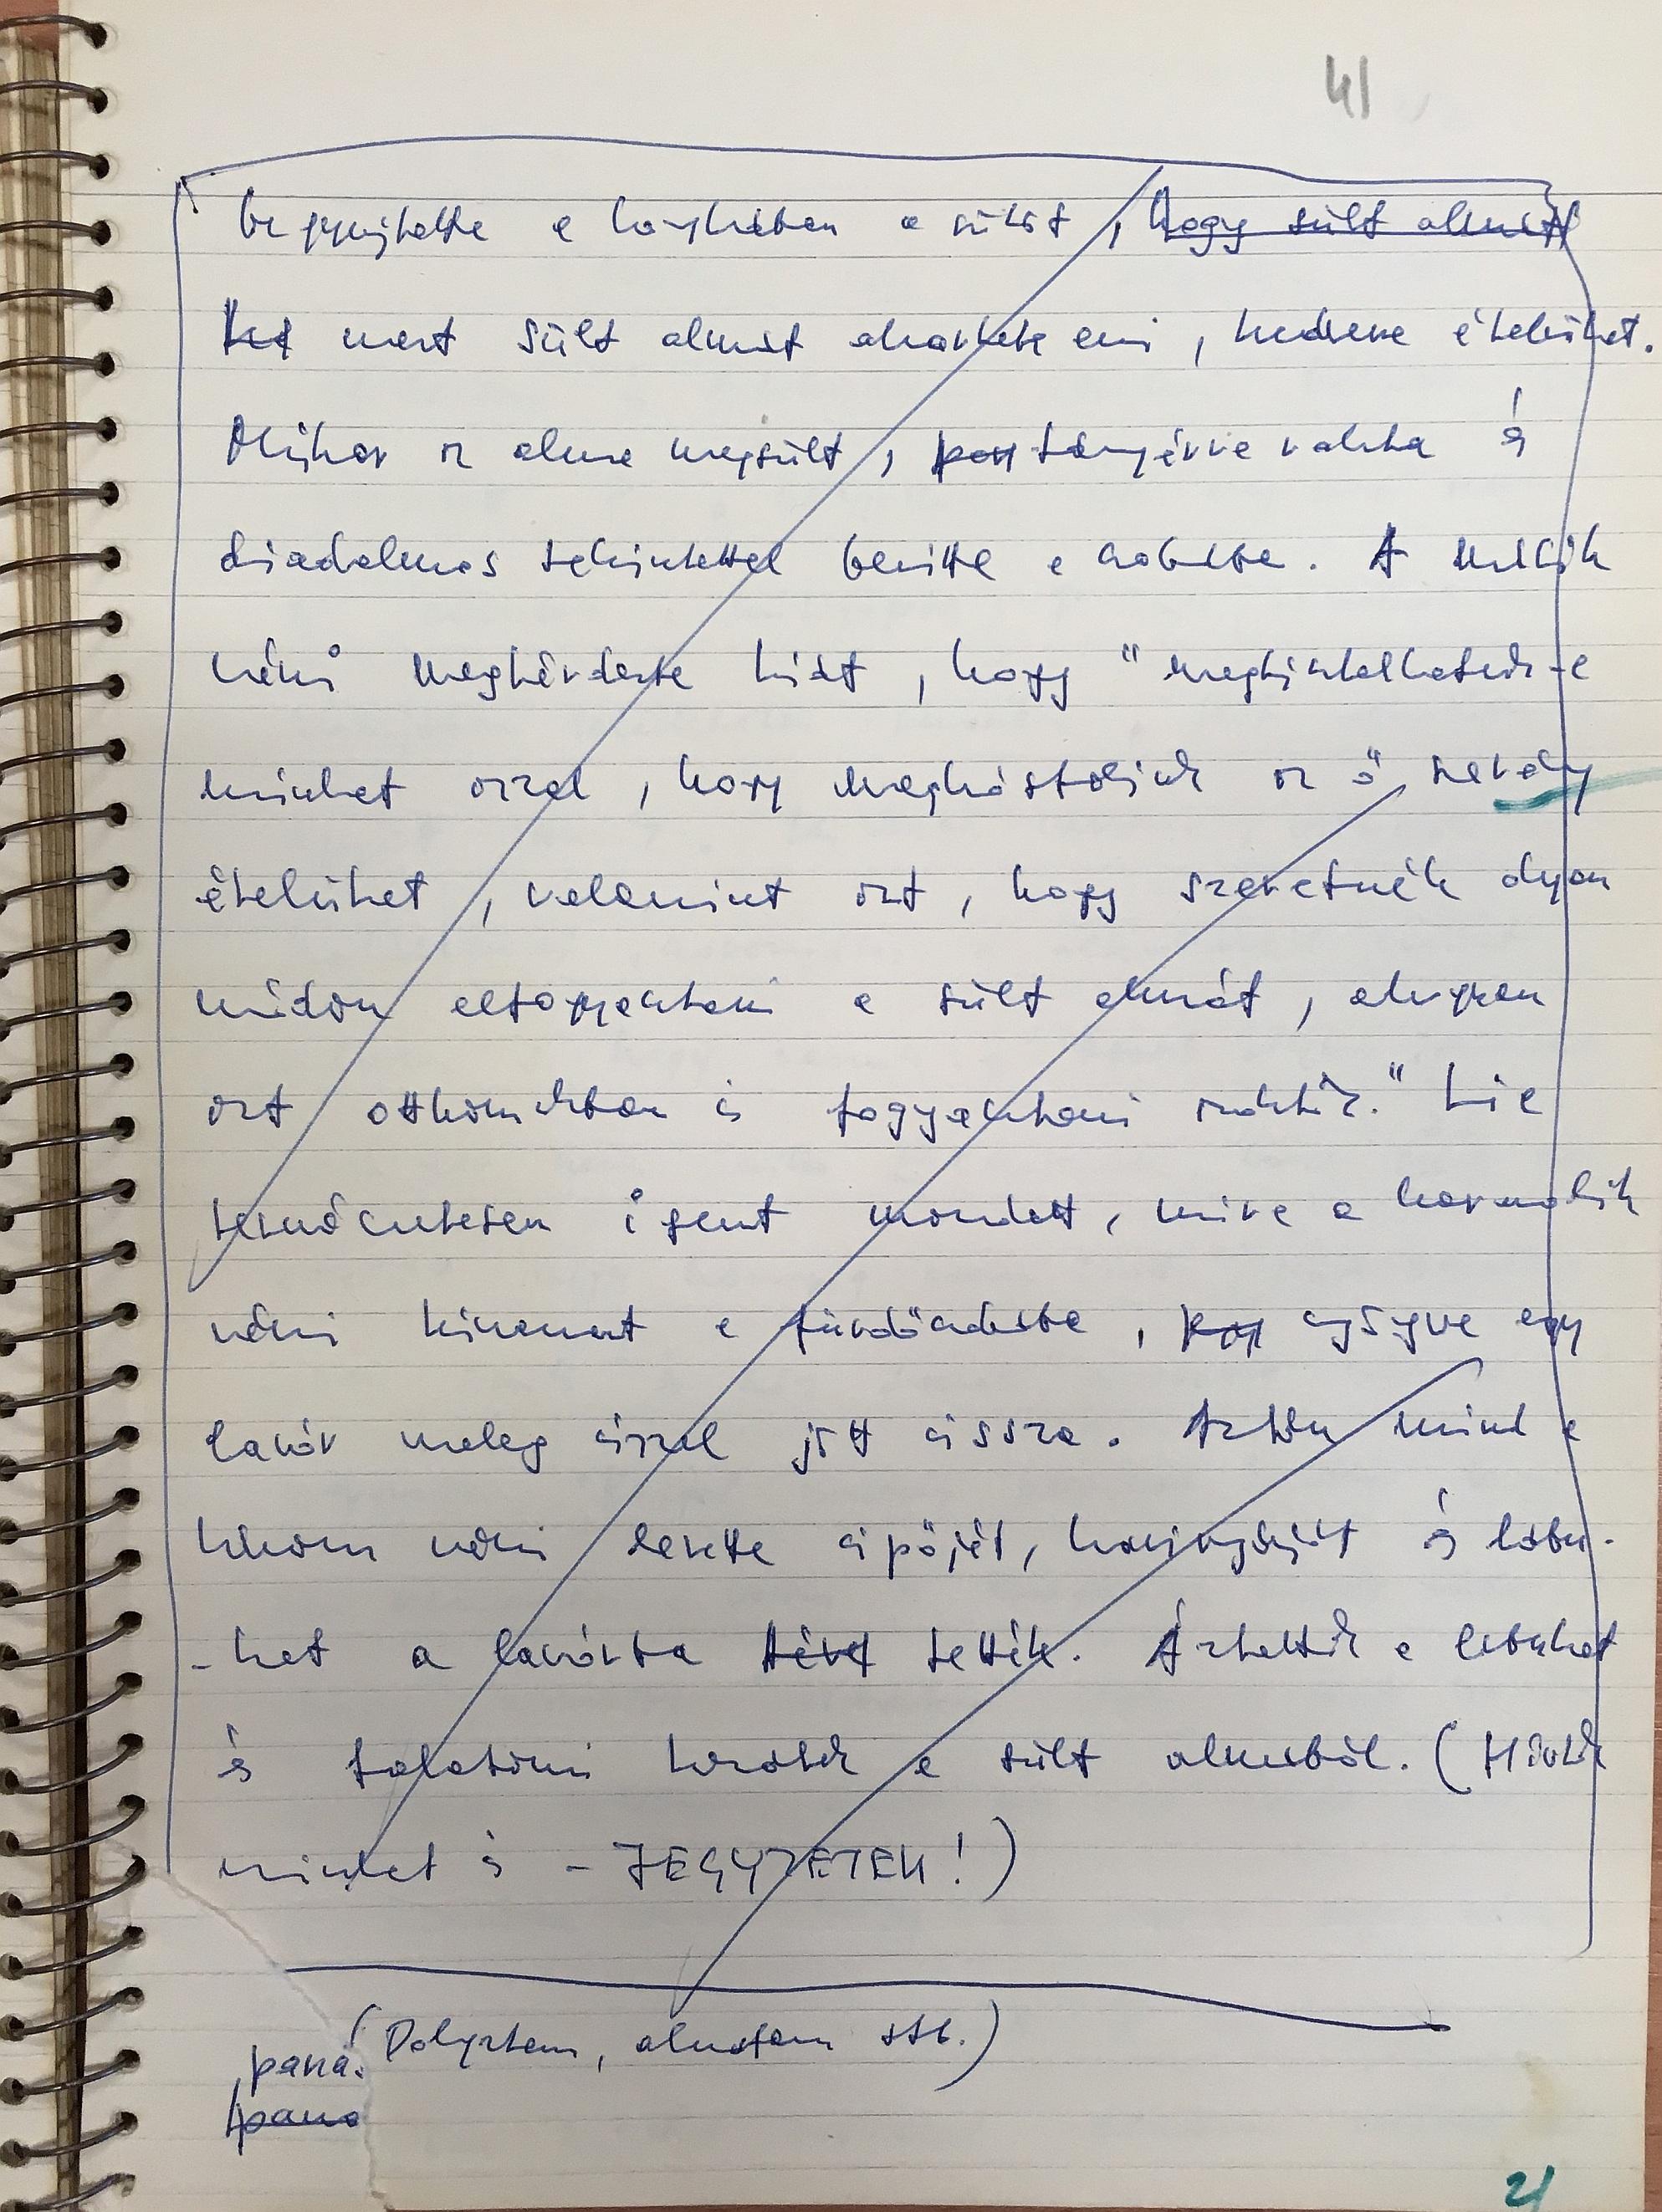 41
begyujtotta a konyhában a sütőt, hogy sült almát
mert sült almát akartak enni, kedvenc ételüket.
Mikor az alma megsült, tányérra rakta és
diadalmas tekintettel bevitte a szobába. A másik
néni megkérdezte Liát, hogy "megkínálhatnak-e
minket azzal, hogy megkóstoljuk az ő
ételüket, valamint azt, hogy szeretnék olyan
módon elfogyasztani a sült almát, ahogyan
azt otthonukban is fogyasztani szokták." Lia
természetesen igent mondott, mire a harmadik
néni kiment a fürdőszobába, egy
lavór meleg vízzel jött vissza. Aztán mind a
három néni levette cipőjét, harisnyáját és lábu-
-kat a lavórba tették. Áztatták a lábukat
és falatozni kezdtek a sült almából. (Hívtak
minket is - JEGYZETEK!)
(Dolgoztam, aludtam stb.)
para
para
21